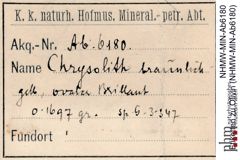 K. k. naturh. Hofmus. Mineral.-petr. Abt.
Akq.-Nr. Ab. 6180.
Name Chrysolith bräunlich
gelb, ovaler Brillant
0·1697 gr. sp. G. 3·347
Fundort
NHMW-MIN-Ab6180
(NHMW-MIN-Ab6180)
nhm